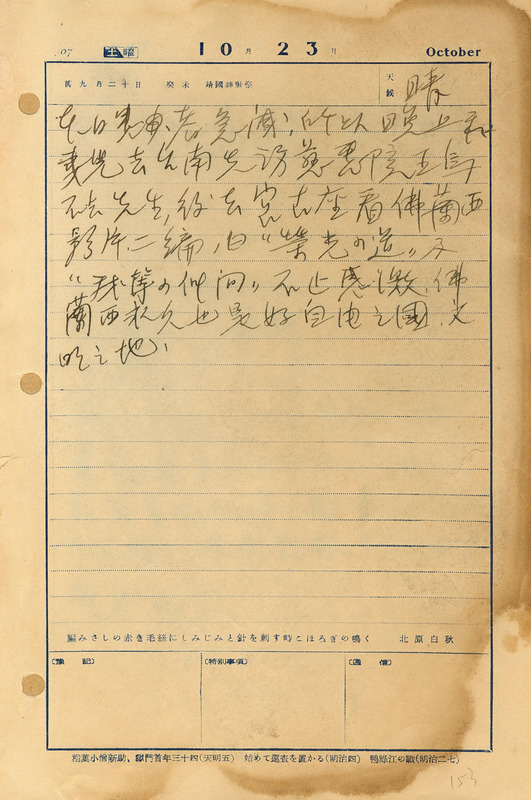 土曜 10月 23日 October
舊九月二十日 癸未 靖國神社祭
天候 晴
本日患者急減,所以日晚上和
去台南先訪慈惠院王烏
先生,後去宮古座看佛蘭西
影片二編,曰“榮光の道”及
“我等の仲間”不止感激,佛
蘭西永久也是好自由之國,文
明之地,
編みさしの赤き毛絲にしみじみと針を刺す時こほろぎの鳴く 北原白秋
(豫記) (特別事項) (通信)
稻葉小僧新助、獄門首年三十四(天明五) 始めて邏査を置かる(明治四) 鴨綠江の戰(明治二七)
153